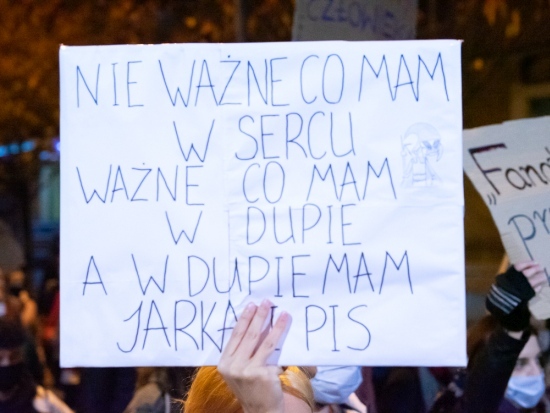 CZŁOWIEK
NIE WAŻNE CO MAM
W SERCU
WAŻNE CO MAM
W DUPIE
A W DUPIE MAM
JARKA I PIS